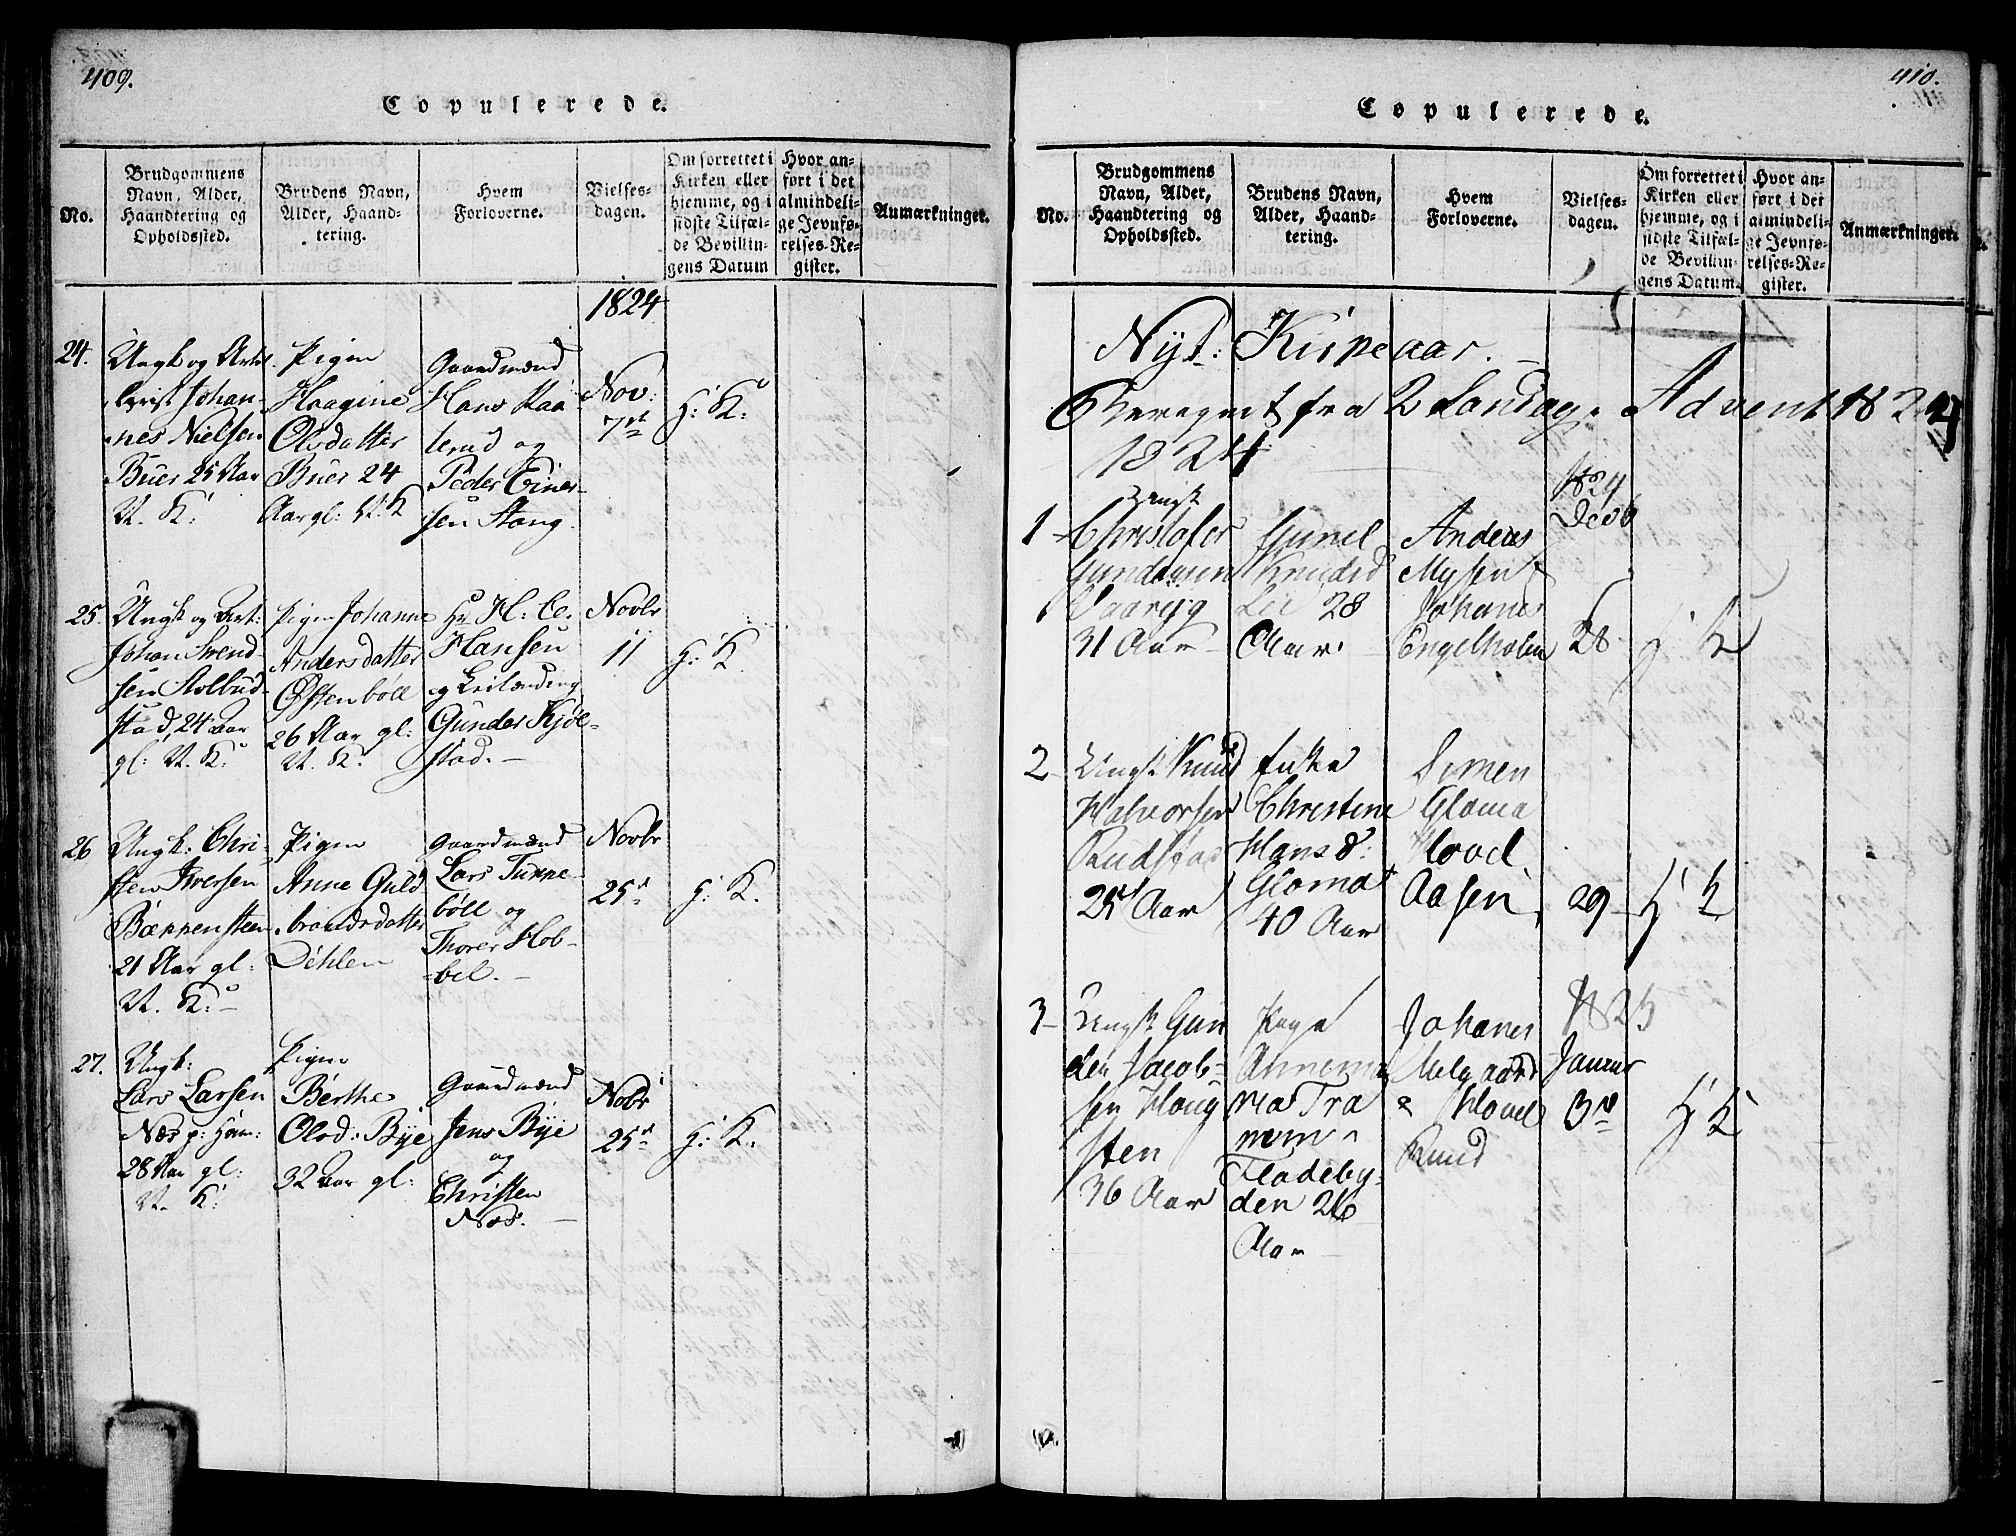 409.
Copulerede.
No.
Brudgommens
Navn, Alder,
Haandtering og
Opholdssted.
Brudens Navn,
Alder, Haand-
tering.
Hvem
Forloverne.
Vielses-
dagen.
Om forrettet i
Kirken eller
hjemme, og i
sidste Tilfæl-
de Bevillin-
gens Datum
Hvor an-
ført i det
almindeli-
ge Jevnfø-
relses-Re-
gister.
Anmærkninger.
1824
24.
Ungk og
Johan-
nes Nielsen
Buer 25 Aar
V. K:
Pigen
Haagine
Olsdatter
Buer 24
Aar gl: V. K
Gaardmænd
Hans
rud og
Peder Einer-
sen Stang.
Nov:
7de
H: K:
25.
Ungk og
Johan Svend
sen Stolbud-
stad, 24 Aar
gl: V. K:
Pigen Johanne
Andersdatter
Østenbøll
26 Aar gl:
V. K.
Hr H: C.
Hansen
og
Gunder Kjøl-
stad. -
Novbr
11
H: K.
26
Ungk: Chri-
sten Iversen
21 Aar gl:
V. K: -
Pigen
Anne Guld
brandsdatter
Dehlen
Gaardmænd
Lars
bøll og
Thorer Hob-
-bel. -
Novbr
25d
H: K.
27.
Ungk:
Lars Larsen
Næs p:
28 Aar gl:
V. K:
Pigen
Berthe
Olsd: Bye
32 Aar gl:
Gaardmænd
Jens Bye
og
Christen
Næs. -
Nobr
25d
H: K.
410.
Copulerede.
No.
Brudgommens
Navn, Alder,
Haandtering og
Opholdssted.
Brudens Navn,
Alder, Haand-
tering.
Hvem
Forloverne.
Vielses-
dagen.
Om forrettet i
Kirken eller
hjemme, og i
sidste Tilfæl-
de Bevillin-
gens Datum.
Hvor an-
ført i det
almindeli-
ge Jevnfø-
relses-Re-
gister.
Anmærkninger.
Nyt: Kirkeaar. -
Beregnet fra 2 Sondag i Advent 1824
1824
1
Ungk
Christofer
Gundersen
31 Aar -
Gunel
Knudsd
Lie 28
Aar.
Anders
Mysen
Johanes
Engelholm
1824
Decb
28
H K
2
Ungk Knud
Halvorsen
Rudstad
25 Aar
Enke
Christine
Hans d:
Gloma
40 Aar
Simen
Gloma
Aasen
29
H K
3
Ungk Gun
der Jacob-
sen Houg
sten
36 Aar
Pige
Annema
ria Tra
nem
Fladeby-
den 26
Aar
Johanes
Melgaard
& Hovel
Ruud
1825
Januar
3d
H K